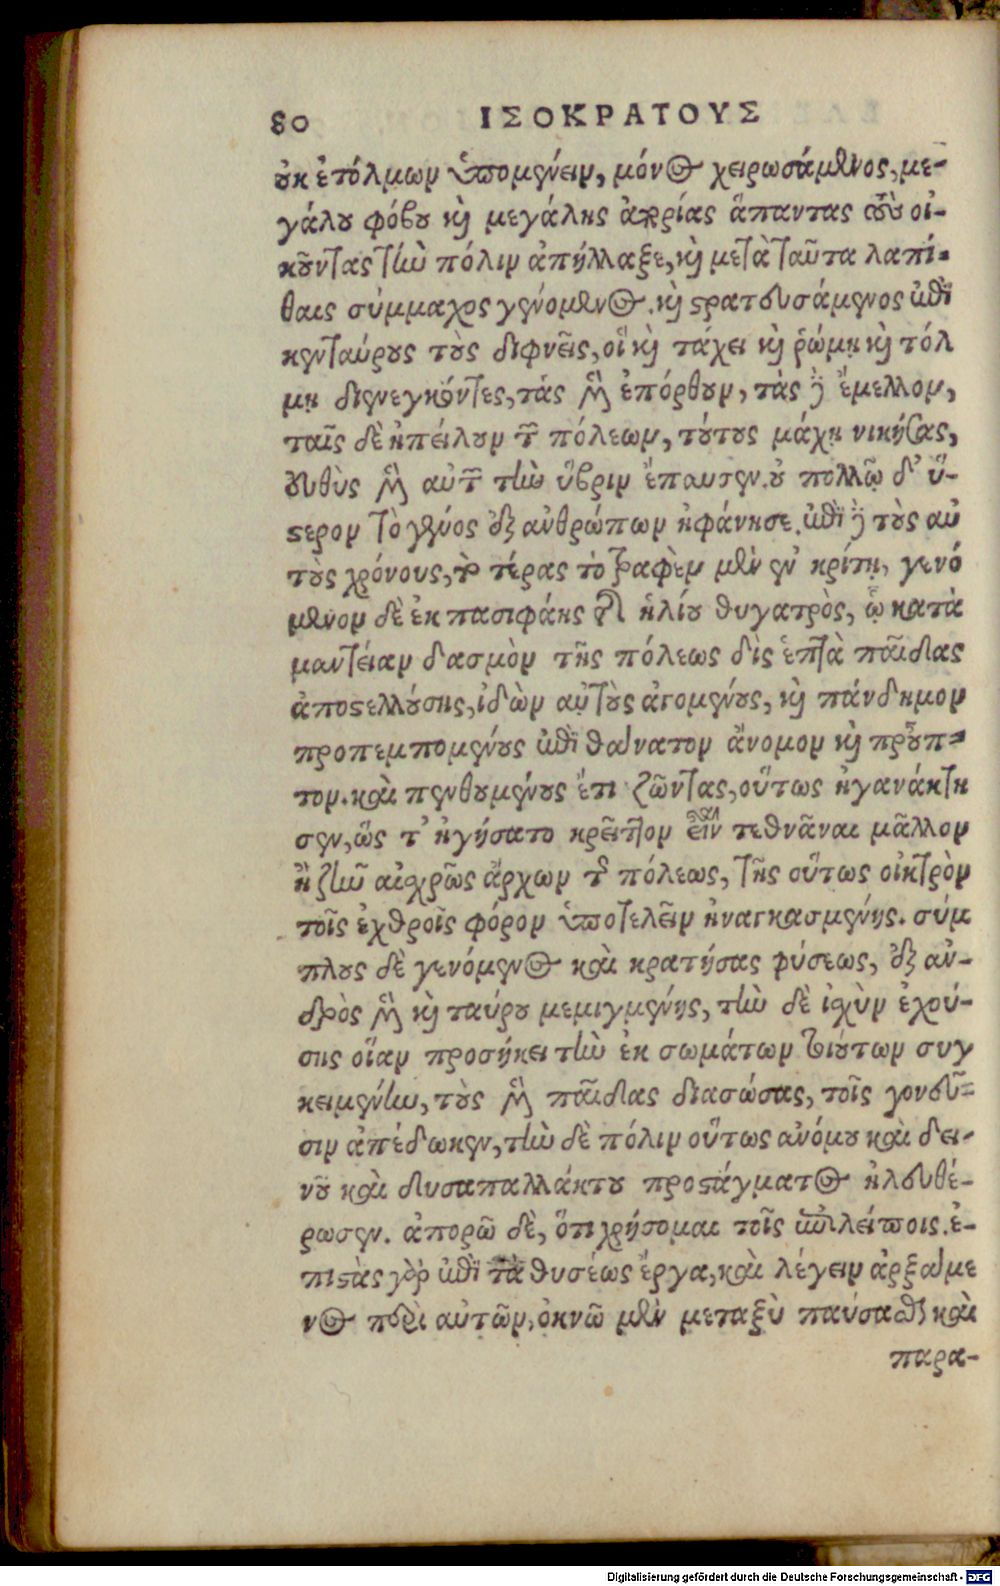 80 ΙΣΟΚΡΑΤΟΥΣ
οὐκ ἐτόλμων ὑπομένειν, μόνος χειρωσάμενος, με-
γάλου φόβου καὶ μεγάλης ἀπορίας ἅπαντας τοὺς οἰ-
κοῦντας τὴν πόλιν ἀπήλλαξε, καὶ μετὰ ταῦτα λαπί-
θαις σύμμαχος γενόμενος. καὶ στρατευσάμενος ἐπὶ
κενταύρους τοὺς διφυεῖς, οἳ καὶ τάχει καὶ ῥώμῃ καὶ τόλ
μῃ διενεγκόντες, τὰς μὲν ἐπόρθουν, τὰς δὲ ἔμελλον,
ταῖς δὲ ἠπείλουν τῶν πόλεων, τούτους μάχῃ νικήσας,
εὐθὺς μὲν αὐτῶν τὴν ὕβριν ἔπαυσεν. οὐ πολλῷ δ' ὕ-
στερον τὸ γένος ἐξ ἀνθρώπων ἠφάνησε. ἐπὶ δὲ τοὺς αὐ
τοὺς χρόνους, τὸ τέρας τὸ τραφὲν μὲν ἐν κρίτῃ, γενό
μενον δὲ ἐκ πασιφάης τῆς ἡλίου θυγατρὸς, ᾧ κατὰ
μαντείαν δασμὸν τῆς πόλεως δὶς ἑπτὰ παῖδας
ἀποστελλούσης, ἰδὼν αὐτοὺς ἀγομένους, καὶ πάνδημον
προπεμπομένους ἐπὶ θάνατον ἄνομον καὶ προῦπ-
τον. καὶ πενθουμένους ἔτι ζῶντας, οὕτως ἠγανάκτη
σεν, ὥς τ' ἡγήσατο κρεῖττον εἶναι τεθνᾶναι μᾶλλον
ἢ ζῆν αἰσχρῶς ἄρχων τῆς πόλεως, τῆς οὕτως οἰκτρὸν
τοῖς ἐχθροῖς φόρον ὑποτελεῖν ἠναγκασμένης. σύμ
πλους δὲ γενόμενος καὶ κρατήσας φύσεως, ἐξ ἀν-
δρὸς μὲν καὶ ταύρου μεμιγμένης, τὴν δὲ ἰσχὺν ἐχού-
σης οἵαν προσήκει τὴν ἐκ σωμάτων τοιούτων συγ
κειμένην, τοὺς μὲν παῖδας διασώσας, τοῖς γονεῦ-
σιν ἀπέδωκεν, τὴν δὲ πόλιν οὕτως ἀνόμου καὶ δει-
νοῦ καὶ δυσαπαλλάκτου προστάγματος ἠλευθέ-
ρωσεν. ἀπορῶ δὲ, ὅτι χρήσομαι τοῖς ὑπολείποις. ἐ-
πιστὰς γὰρ ἐπὶ τὰ θυσέως ἔργα, καὶ λέγειν ἀρξάμε
νος περὶ αὐτῶν, ὀκνῶ μὲν μεταξὺ παύσασθαι καὶ
παρα-
Digitalisierung gefördert durch die Deutsche Forschungsgemeinschaft - DFG